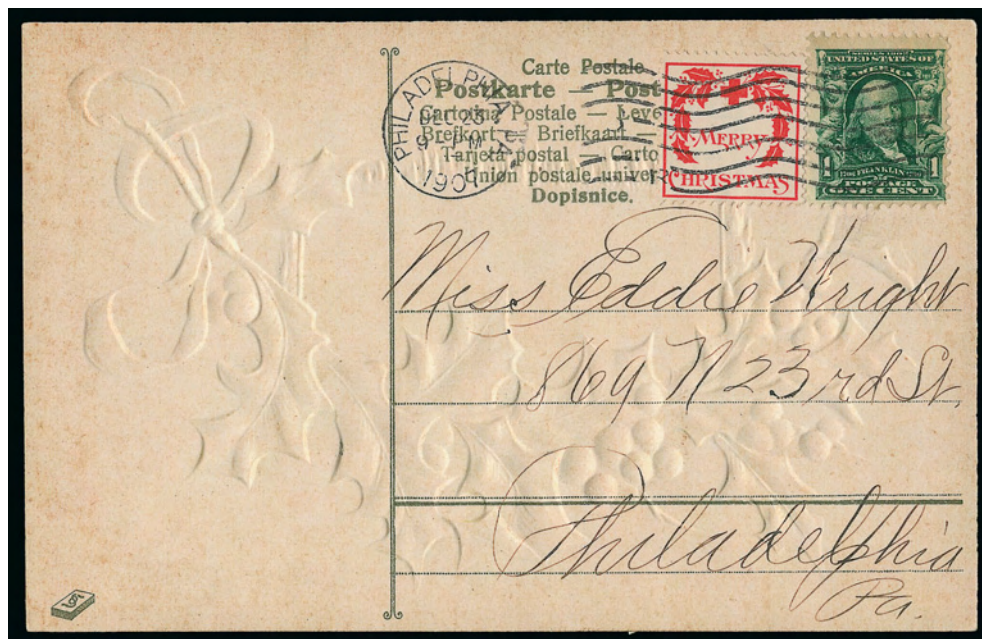 PHILADELPHIA, PA.
DEC 23
9 - PM
1907
Carte Postale
Postkarte — Post
Cartolina Postale — Leve
Brefkort — Briefkaart —
Tarjeta postal — Carto
Union postale univer
Dopisnice.
MERRY
CHRISTMAS
SERIES 1902
UNITED STATES OF
AMERICA
1 1
1706 FRANKLIN 1790
POSTAGE
ONE CENT
Miss Eddie Wright
869 N 23rd St.
Philadelphia
Pa.